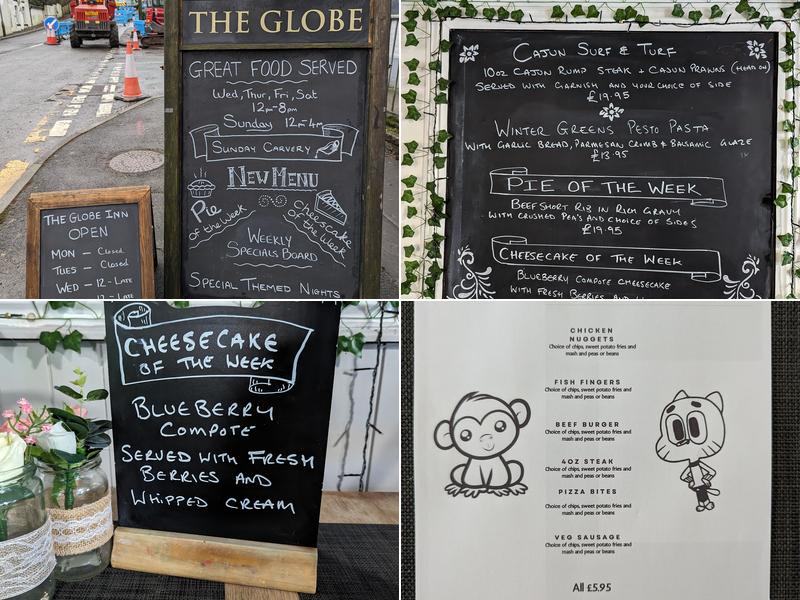 THE GLOBE
GREAT FOOD SERVED
Wed, Thur, Fri, Sat
12pm-8pm
Sunday 12pm-4pm
SUNDAY CARVERY
NEW MENU
Pie
of the week
CHEESECAKE
OF THE WEEK
WEEKLY
SPECIALS BOARD
SPECIAL THEMED NIGHTS
THE GLOBE INN
OPEN
MON - Closed
TUES - Closed
WED - 12-LATE
12-LATE
CAJUN SURF & TURF
10oz CAJUN RUMP STEAK + CAJUN PRAWNS (HEAD ON)
SERVED WITH GARNISH AND YOUR CHOICE OF SIDE
£19.95
WINTER GREENS PESTO PASTA
WITH GARLIC BREAD, PARMESAN CRUMB & BALSAMIC GLAZE
£13.95
PIE OF THE WEEK
BEEF SHORT RIB IN RICH GRAVY
WITH CRUSHED PEA'S AND CHOICE OF SIDES
£19.95
CHEESECAKE OF THE WEEK
BLUEBERRY COMPOTE CHEESECAKE
WITH FRESH BERRIES AND
CHEESECAKE
OF THE WEEK
BLUEBERRY
COMPOTE
SERVED WITH FRESH
BERRIES AND
WHIPPED CREAM
CHICKEN
NUGGETS
Choice of chips, sweet potato fries and
mash and peas or beans
FISH FINGERS
Choice of chips, sweet potato fries and
mash and peas or beans
BEEF BURGER
Choice of chips, sweet potato fries and
mash and peas or beans
4OZ STEAK
Choice of chips, sweet potato fries and
mash and peas or beans
PIZZA BITES
Choice of chips, sweet potato fries and
mash and peas or beans
VEG SAUSAGE
Choice of chips, sweet potato fries and
mash and peas or beans
All £5.95